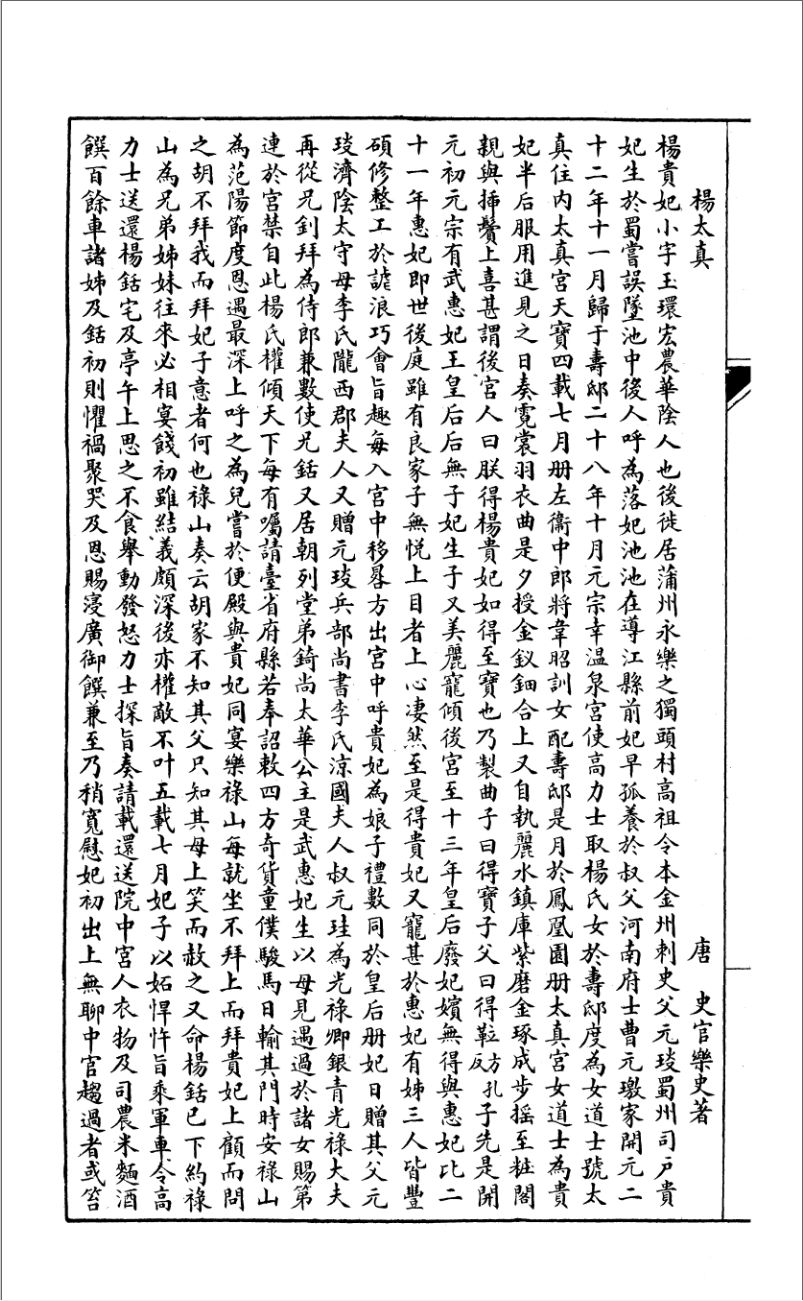 楊太真　唐　史官樂史著
楊貴妃小字玉環宏農華陰人也後徙居蒲州永樂之獨頭村高祖令本金州刺史父元琰蜀州司戶貴
妃生於蜀嘗誤墜池中後人呼為落妃池池在導江縣前妃早孤養於叔父河南府士曹元璬家開元二
十二年十一月歸于壽邸二十八年十月元宗幸温泉宮使高力士取楊氏女於壽邸度為女道士號太
真住内太真宮天寶四載七月册左衞中郎將韋昭訓女配壽邸是月於鳳凰園册太真宮女道士為貴
妃半后服用進見之日奏霓裳羽衣曲是夕授金釵鈿合上又自執麗水鎮庫紫磨金琢成步搖至粧閣
親與揷鬢上喜甚謂後宮人曰朕得楊貴妃如得至寶也乃製曲子曰得寶子父曰得鞚方孔反子先是開
元初元宗有武惠妃王皇后后無子妃生子又美麗寵傾後宮至十三年皇后廢妃嬪無得與惠妃比二
十一年惠妃即世後庭雖有良家子無悦上目者上心凄然至是得貴妃又寵甚於惠妃有姊三人皆豐
碩修整工於謔浪巧會旨趣每入宮中移晷方出宮中呼貴妃為娘子禮數同於皇后册妃日贈其父元
琰濟陰太守母李氏隴西郡夫人又贈元琰兵部尚書李氏涼國夫人叔元珪為光祿卿銀青光祿大夫
再從兄釗拜為侍郎兼數使兄銛又居朝列堂弟錡尚太華公主是武惠妃生以母見遇過於諸女賜第
連於宮禁自此楊氏權傾天下每有囑請臺省府縣若奉詔敕四方奇貨童僕駿馬日輸其門時安祿山
為范陽節度恩遇最深上呼之為兒嘗於便殿與貴妃同宴樂祿山每就坐不拜上而拜貴妃上顧而問
之胡不拜我而拜妃子意者何也祿山奏云胡家不知其父只知其母上笑而赦之又命楊銛已下約祿
山為兄弟姊妹往來必相宴餞初雖結義頗深後亦權敵不叶五載七月妃子以妬悍忤旨乘軍車令高
力士送還楊銛宅及亭午上思之不食舉動發怒力士探旨奏請載還送院中宮人衣物及司農米麵酒
饌百餘車諸姊及銛初則懼禍聚哭及恩賜寖廣御饌兼至乃稍寬慰妃初出上無聊中官趨過者或笞